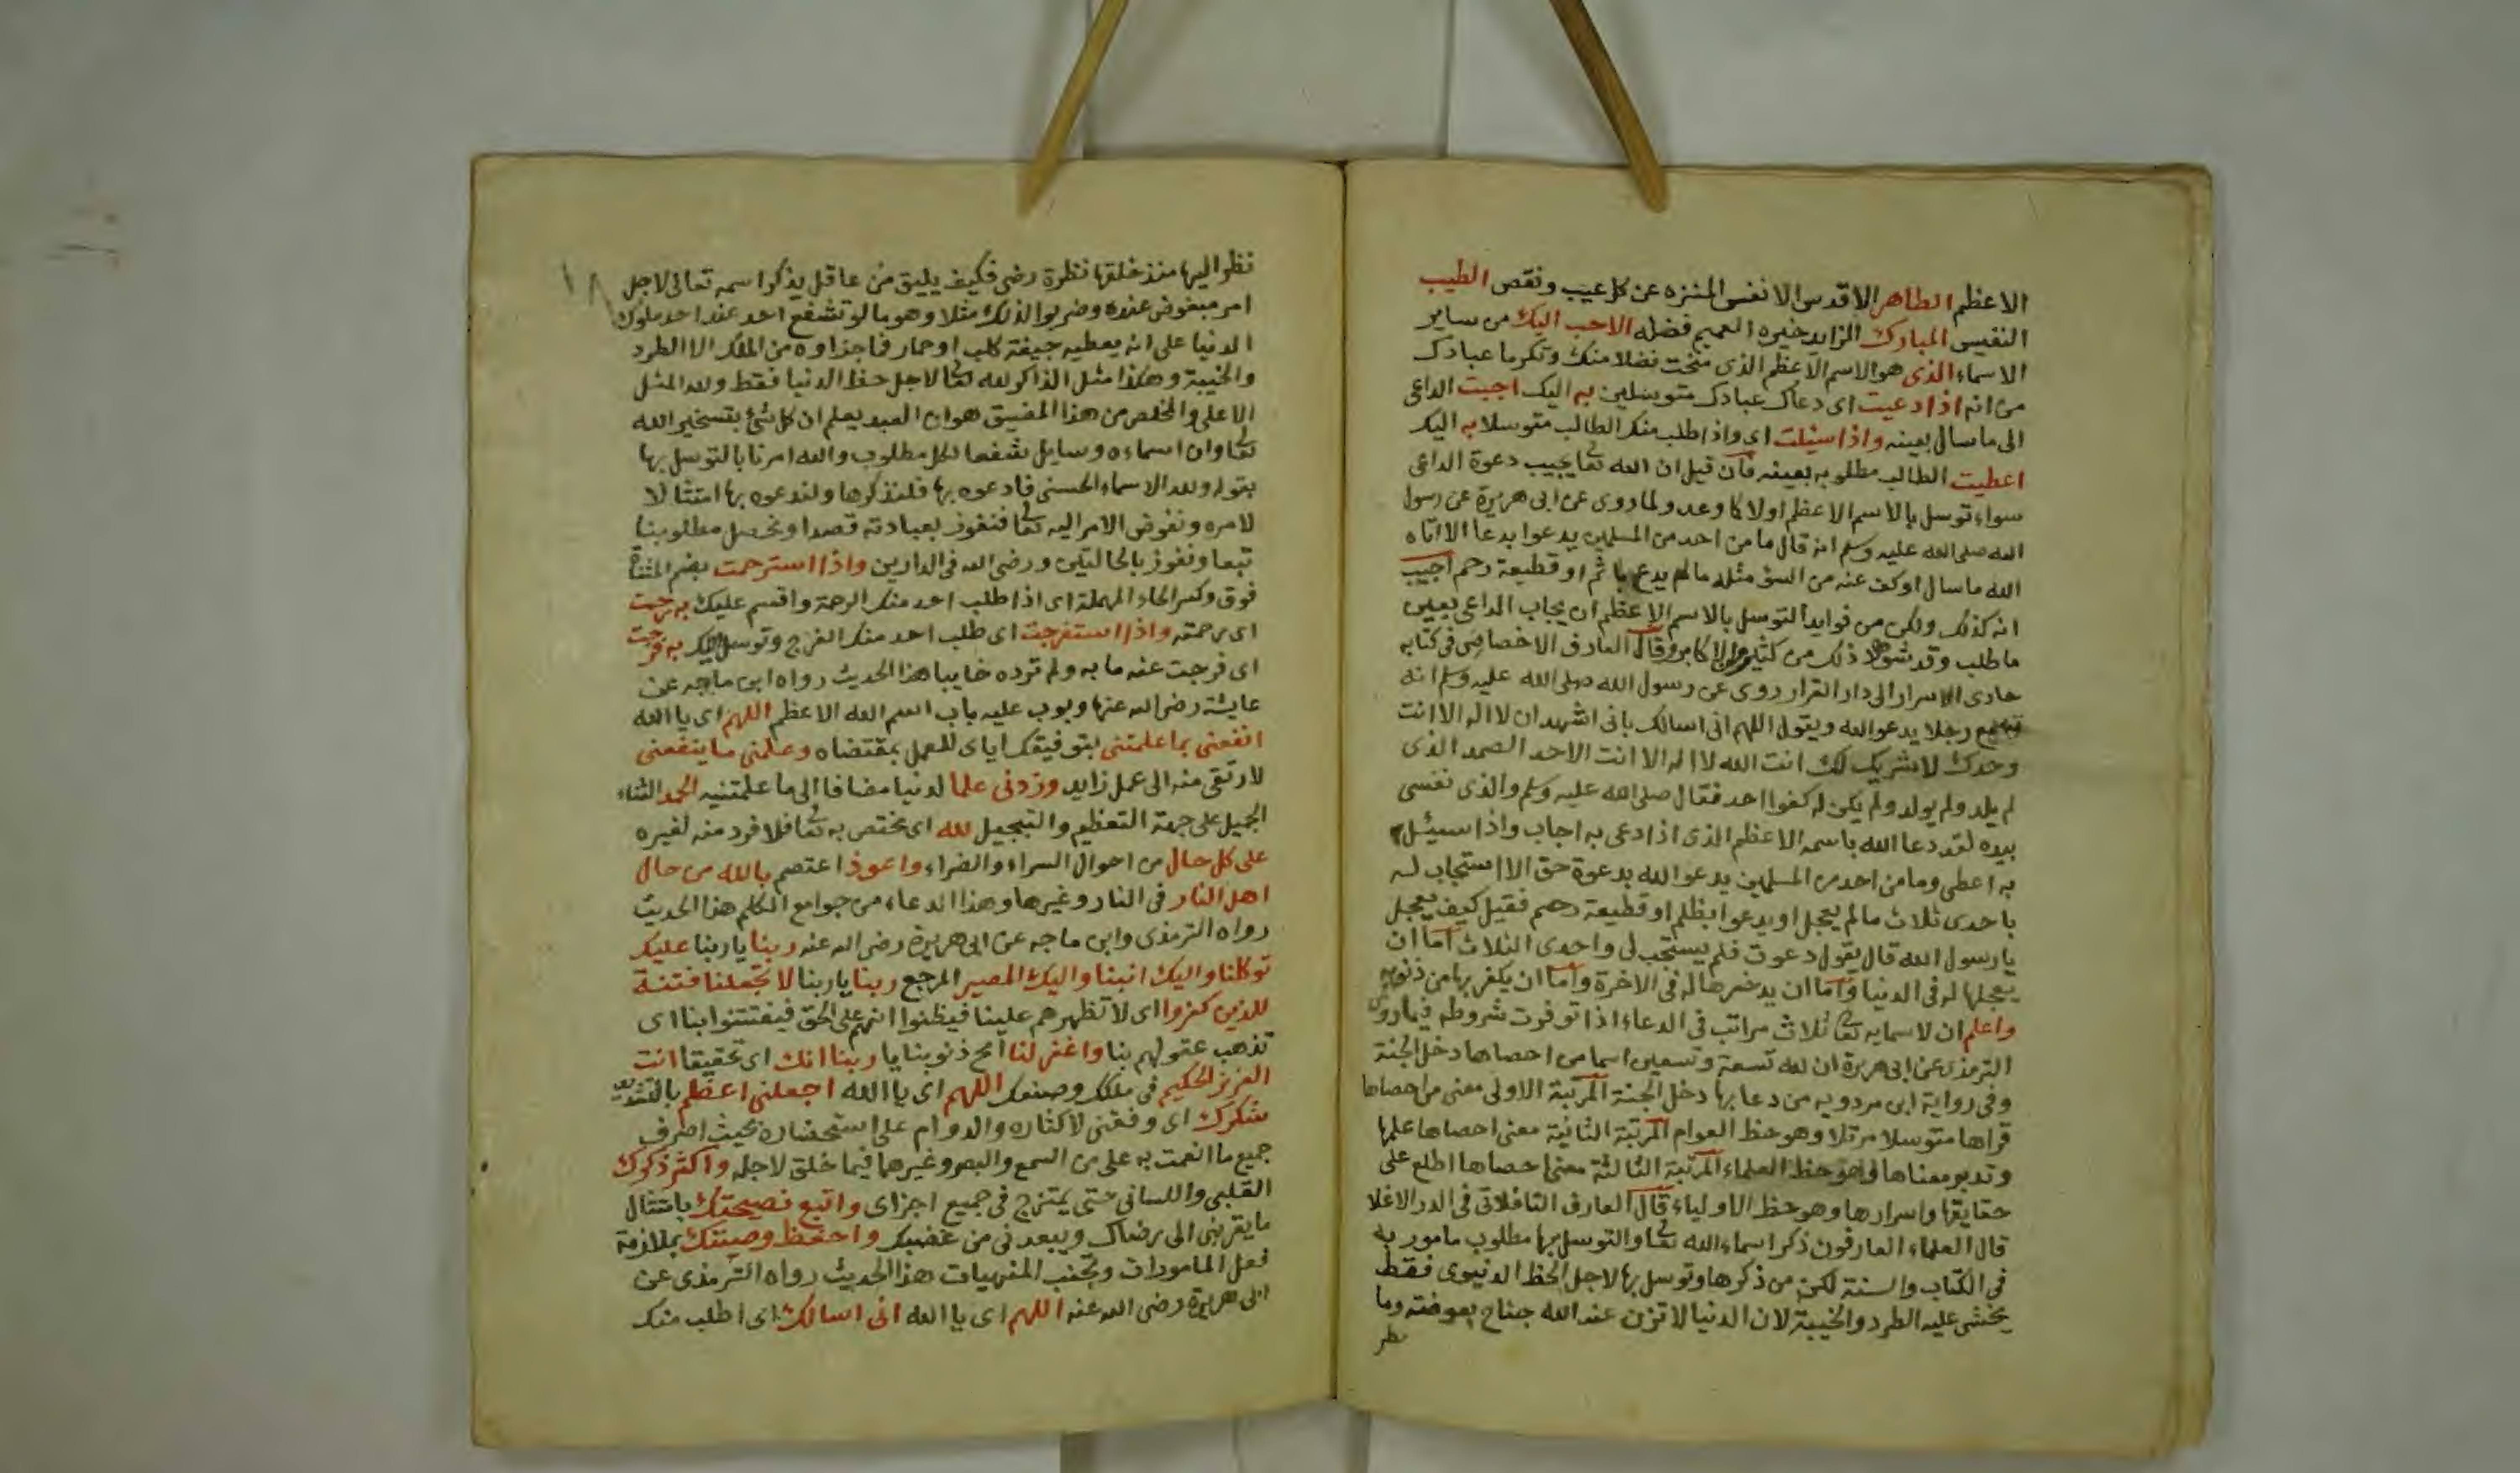 الاعظم الطاهر الاقدس الانفس المنزه عن كل عيب ونقص الطيب
النفيس المبارك الزايد خيره العميم فضله الاحب اليك من ساير
الاسماء الذى هو الاسم الاعظم الذى منحت تفضلا منك وتكرما عبادك
من انه اذا دعيت اى دعاك عبادك متوسلين به اليك اجبت الداعى
الى ما سال بعينه واذا سئلت اى واذا طلب منك الطالب متوسلا به اليك
اعطيت الطالب مطلوبه بعينه فان قيل ان الله تعا يجيب دعوة الداعى
سواء توسل بالاسم الاعظم اولا كما وعد ولما روى عن ابى هريرة عن رسول
الله صلى الله عليه وسلم انه قال ما من احد من المسلمين يدعوا بدعا الا اتاه
الله ما سال او كف عنه من السؤ مثله ما لم يدع باثم او قطيعة رحم اجيب
انه كذلك ولكن من فوايد التوسل بالاسم الاعظم ان يجاب الداعى بعين
ما طلب وقد ذلك من كثير الاكابر وقال العارف الاخصاصى فى كتابه
حادى الاسرار الى دار القرار روى عن رسول الله صلى الله عليه وسلم انه
سمع رجلا يدعو الله ويقول اللهم انى اسالك بانى اشهد ان لا اله الا انت
وحدك لا شريك لك انت الله لا اله الا انت الاحد الصمد الذى
لم يلد ولم يولد ولم يكن له كفوا احد فقال صلى الله عليه وسلم والذى نفسى
بيده لقد دعا الله باسمه الاعظم الذى اذا دعى به اجاب واذا سيئل
به اعطى وما من احد من المسلمين يدعو الله بدعوة حق الا استجاب له
باحدى ثلاث ما لم يعجل او يدعوا بظلم او قطيعة رحم فقيل كيف يعجل
يا رسول الله قال يقول دعوت فلم يستجب لى واحدى الثلاث اما ان
يعجلها له فى الدنيا واما ان يدخرها له فى الاخرة واما ان يكفر بها من ذنوبه
واعلم ان لاسمايه تعا ثلاث مراتب فى الدعاء اذا توفرت شروطه فيما روى
الترمذى عن ابى هريرة ان لله تسعة وتسعين اسما من احصاها دخل الجنة
وفى رواية ابن مردويه من دعا بها دخل الجنة المرتبة الاولى معنى من احصاها
قراها متوسلا مرتلا وهو حظ العوام المرتبة الثانية معنى احصاها علمها
وتدبر معناها وهو حظ العلماء المرتبة الثالثة معنى احصاها اطلع على
حقايقها واسرارها وهو حظ الاولياء قال العارف التافلاتى فى الدر الاغلا
قال العلماء العارفون ذكر اسماء الله تعا والتوسل بها مطلوب مامور به
فى الكتاب والسنة لكن من ذكرها وتوسل بها لاجل الحظ الدنيوى فقط
يخشى عليه الطرد والخيبة لان الدنيا لا تزن عند الله جناح بعوضة وما
نظر
١٨
نظر اليها منذ خلقها نظرة رضى فكيف يليق من عاقل يذكر اسمه تعالى لاجل
امر مبغوض عنده وضربوا لذلك مثلا وهو ما لو تشفع احد عند احد ملوك
الدنيا على انه يعطيه جيفة كلب او حمار فما جزاوه من الملك الا الطرد
والخيبة وهكذا مثل الذاكر لله تعا لاجل حظ الدنيا فقط ولله المثل
الاعلى والمخلص من هذا المضيق هو ان العبد يعلم ان كل شئ بتسخير الله
تعا وان اسماءه وسايل شفعا لكل مطلوب والله امرنا بالتوسل بها
بقوله ولله الاسماء الحسنى فادعوه بها فلنذكرها ولندعوه بها امتثالا
لامره ونفوض الامر اليه تعا فنفوز بعبادته قصدا ونحصل مطلوبنا
تبعا ونفوز بالحالتين ورضى الله فى الدارين واذا استرحمت بضم المثناة
فوق وكسر الحاء المهملة اى اذا طلب احد منك الرحمة واقسم عليك به رحمت
اى رحمته واذا استفرجت اى طلب احد منك الفرج وتوسل اليك به فرجت
اى فرجت عنه ما به ولم ترده خايبا هذا الحديث رواه ابن ماجه عن
عايشة رضى الله عنها وبوب عليه باب اسم الله الاعظم اللهم اى يا الله
انفعنى بما علمتنى بتوفيقك اياى للعمل بمقتضاه وعلمنى ما ينفعنى
لارتقى منه الى عمل زايد وزدنى علما لدنيا مضافا الى ما علمتنيه الحمد الثناء
الجميل على جهة التعظيم والتبجيل لله اى مختص به تعا فلا فرد منه لغيره
على كل حال من احوال السراء والضراء واعوذ اعتصم بالله من حال
اهل النار فى النار وغيرها وهذا الدعاء من جوامع الكلم هذا الحديث
رواه الترمذى وابن ماجه عن ابى هريرة رضى الله عنه ربنا يا ربنا عليك
توكلنا واليك انبنا واليك المصير المرجع ربنا يا ربنا لا تجعلنا فتنة
للذين كفروا اى لا تظهرهم علينا فيظنوا انهم على الحق فيفتتنوا بنا اى
تذهب عقولهم بنا واغفر لنا امح ذنوبنا يا ربنا انك اى تحقيقا انت
العزيز الحكيم فى ملكك وصنعك اللهم اى يا الله اجعلنى اعظم بالتشديد
شكرك اى وفقنى لاكثاره والدوام على استحضاره بحيث اصرف
جميع ما انعمت به على من السمع والبصر وغيرهما فيما خلق لاجله واكثر ذكرك
القلبى واللسانى حتى يمتزج فى جميع اجزاى واتبع نصيحتك بامتثال
ما يقربنى الى رضاك ويبعدنى من غضبك واحفظ وصيتك بملازمة
فعل المامورات وتجنب المنهيات هذا الحديث رواه الترمذى عن
ابى هريرة رضى الله عنه اللهم اى يا الله انى اسالك اى اطلب منك